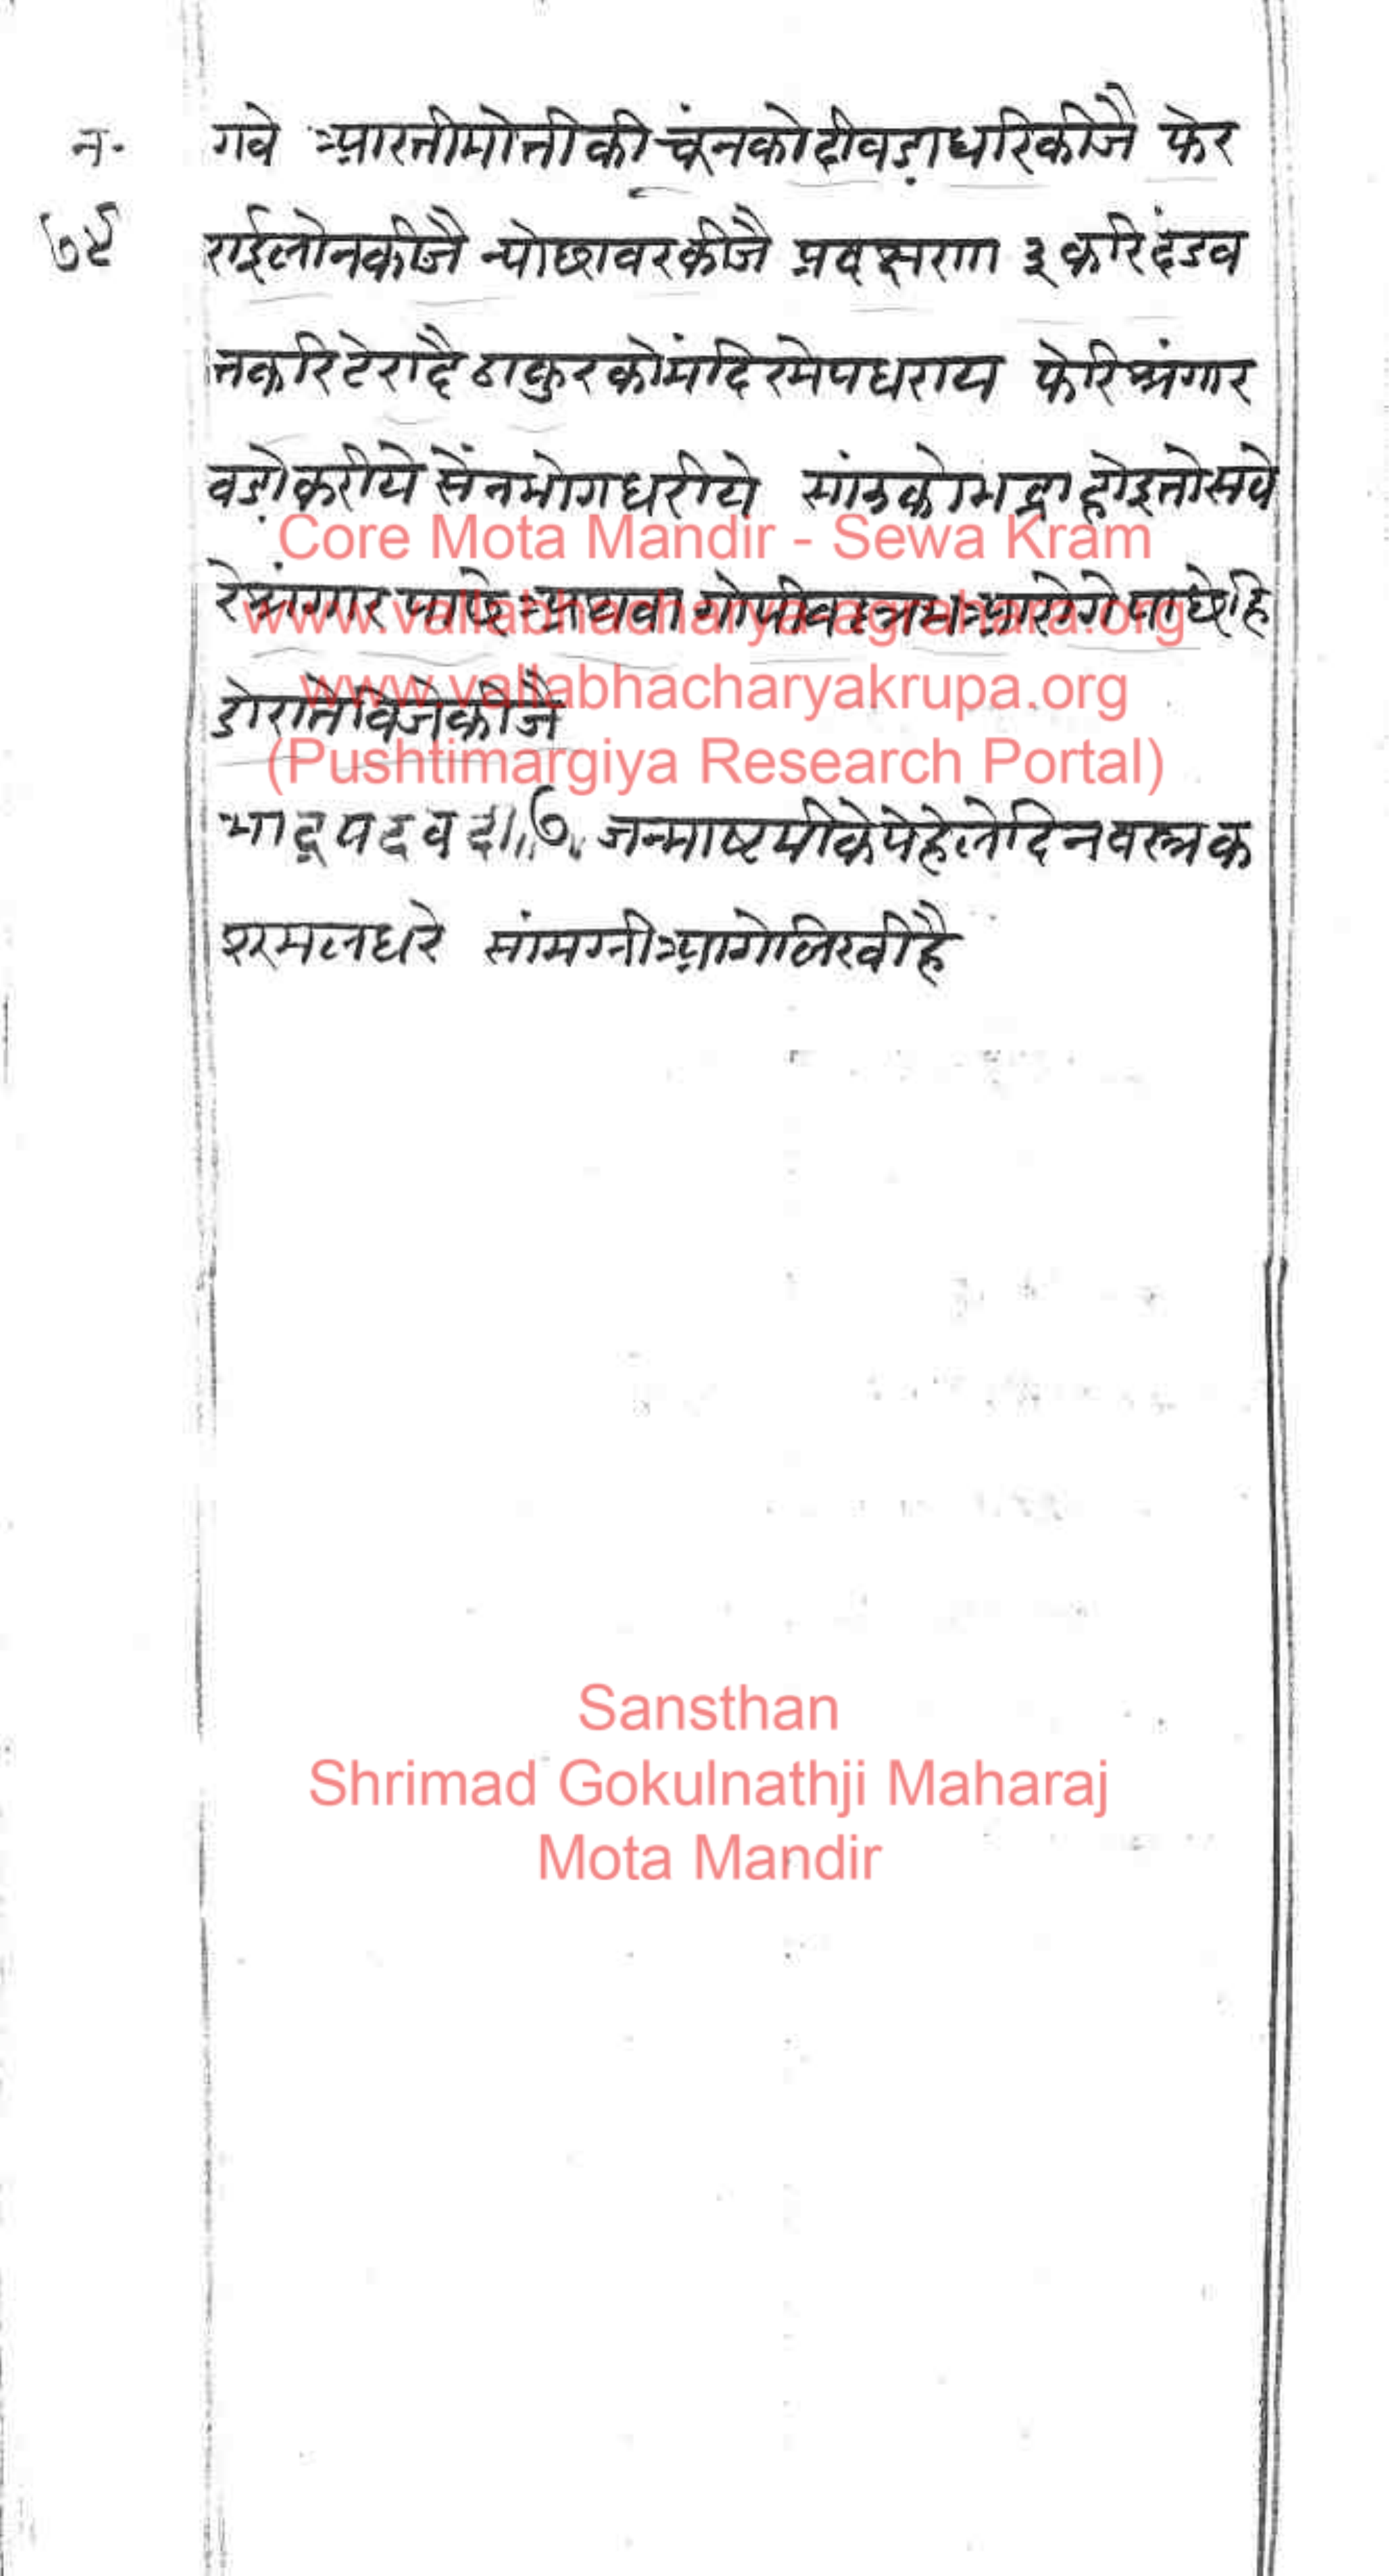 न॰ गवे आरती मोती की चूंन को दीवड़ा धरि कीजै फेर
७९ राई लोन कीजै न्योछावर कीजै प्रदक्षरणा ३ करि दंडव
त करि टेरा दै ठाकुर को मंदिर मे पधराय फेरि श्रंगार
वड़ो करीये सेंन भोग धरीये सांठ को भद्रा होइ तो सवे
Core Mota Mandir - Sewa Kram
रे श्रंगार पाछे अथवा गोपीवल्लभ आरोगे पाछे हिं
www.vallabhacharya-agrahara.org
www.vallabhacharyakrupa.org
डोरा तो विजे कीजै
(Pushtimargiya Research Portal)
भाद्रपद वदी ॥ ७ ॥ जन्माष्टमी के पेहेले दिन वस्त्र क
श्रमल धरे सांमग्री आगे लिखी है
Sansthan
Shrimad Gokulnathji Maharaj
Mota Mandir